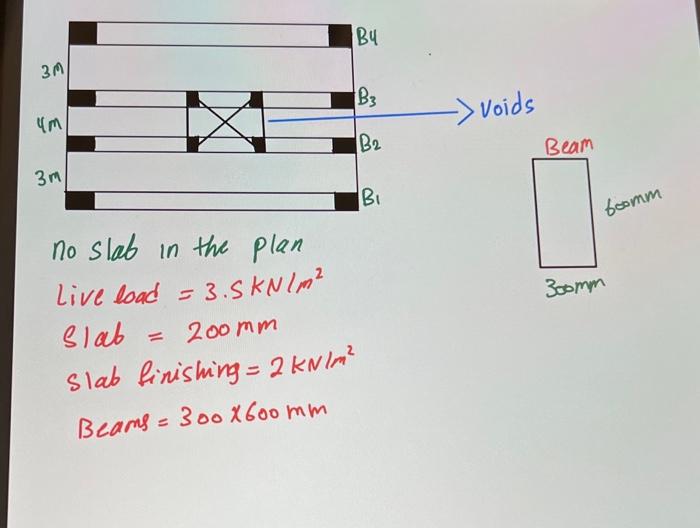 B4
3M
B3
Voids
4M
B2
3M
B1
Beam
600mm
300mm
no slab in the plan
Live load = 3.5 kN/m²
Slab = 200 mm
Slab finishing = 2 kN/m²
Beams = 300 X 600 mm